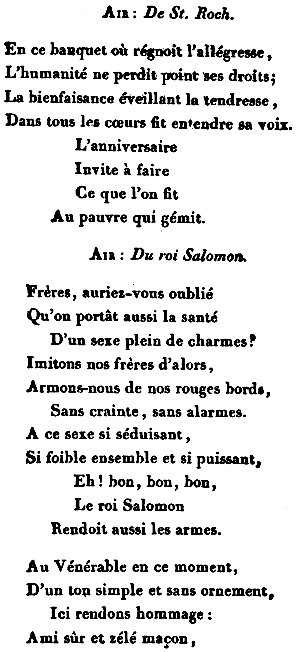 AIR : De St. Roch.
En ce banquet où régnoit l'allégresse,
L'humanité ne perdit point ses droits;
La bienfaisance éveillant la tendresse,
Dans tous les cœurs fit entendre sa voix.
L'anniversaire
Invite à faire
Ce que l'on fit
Au pauvre qui gémit.
AIR : Du roi Salomon.
Frères, auriez-vous oublié
Qu'on portât aussi la santé
D'un sexe plein de charmes?
Imitons nos frères d'alors,
Armons-nous de nos rouges bords,
Sans crainte, sans alarmes.
A ce sexe si séduisant,
Si foible ensemble et si puissant,
Eh! bon, bon, bon,
Le roi Salomon
Rendoit aussi les armes.
Au Vénérable en ce moment,
D'un ton simple et sans ornement,
Ici rendons hommage :
Ami sûr et zélé maçon,